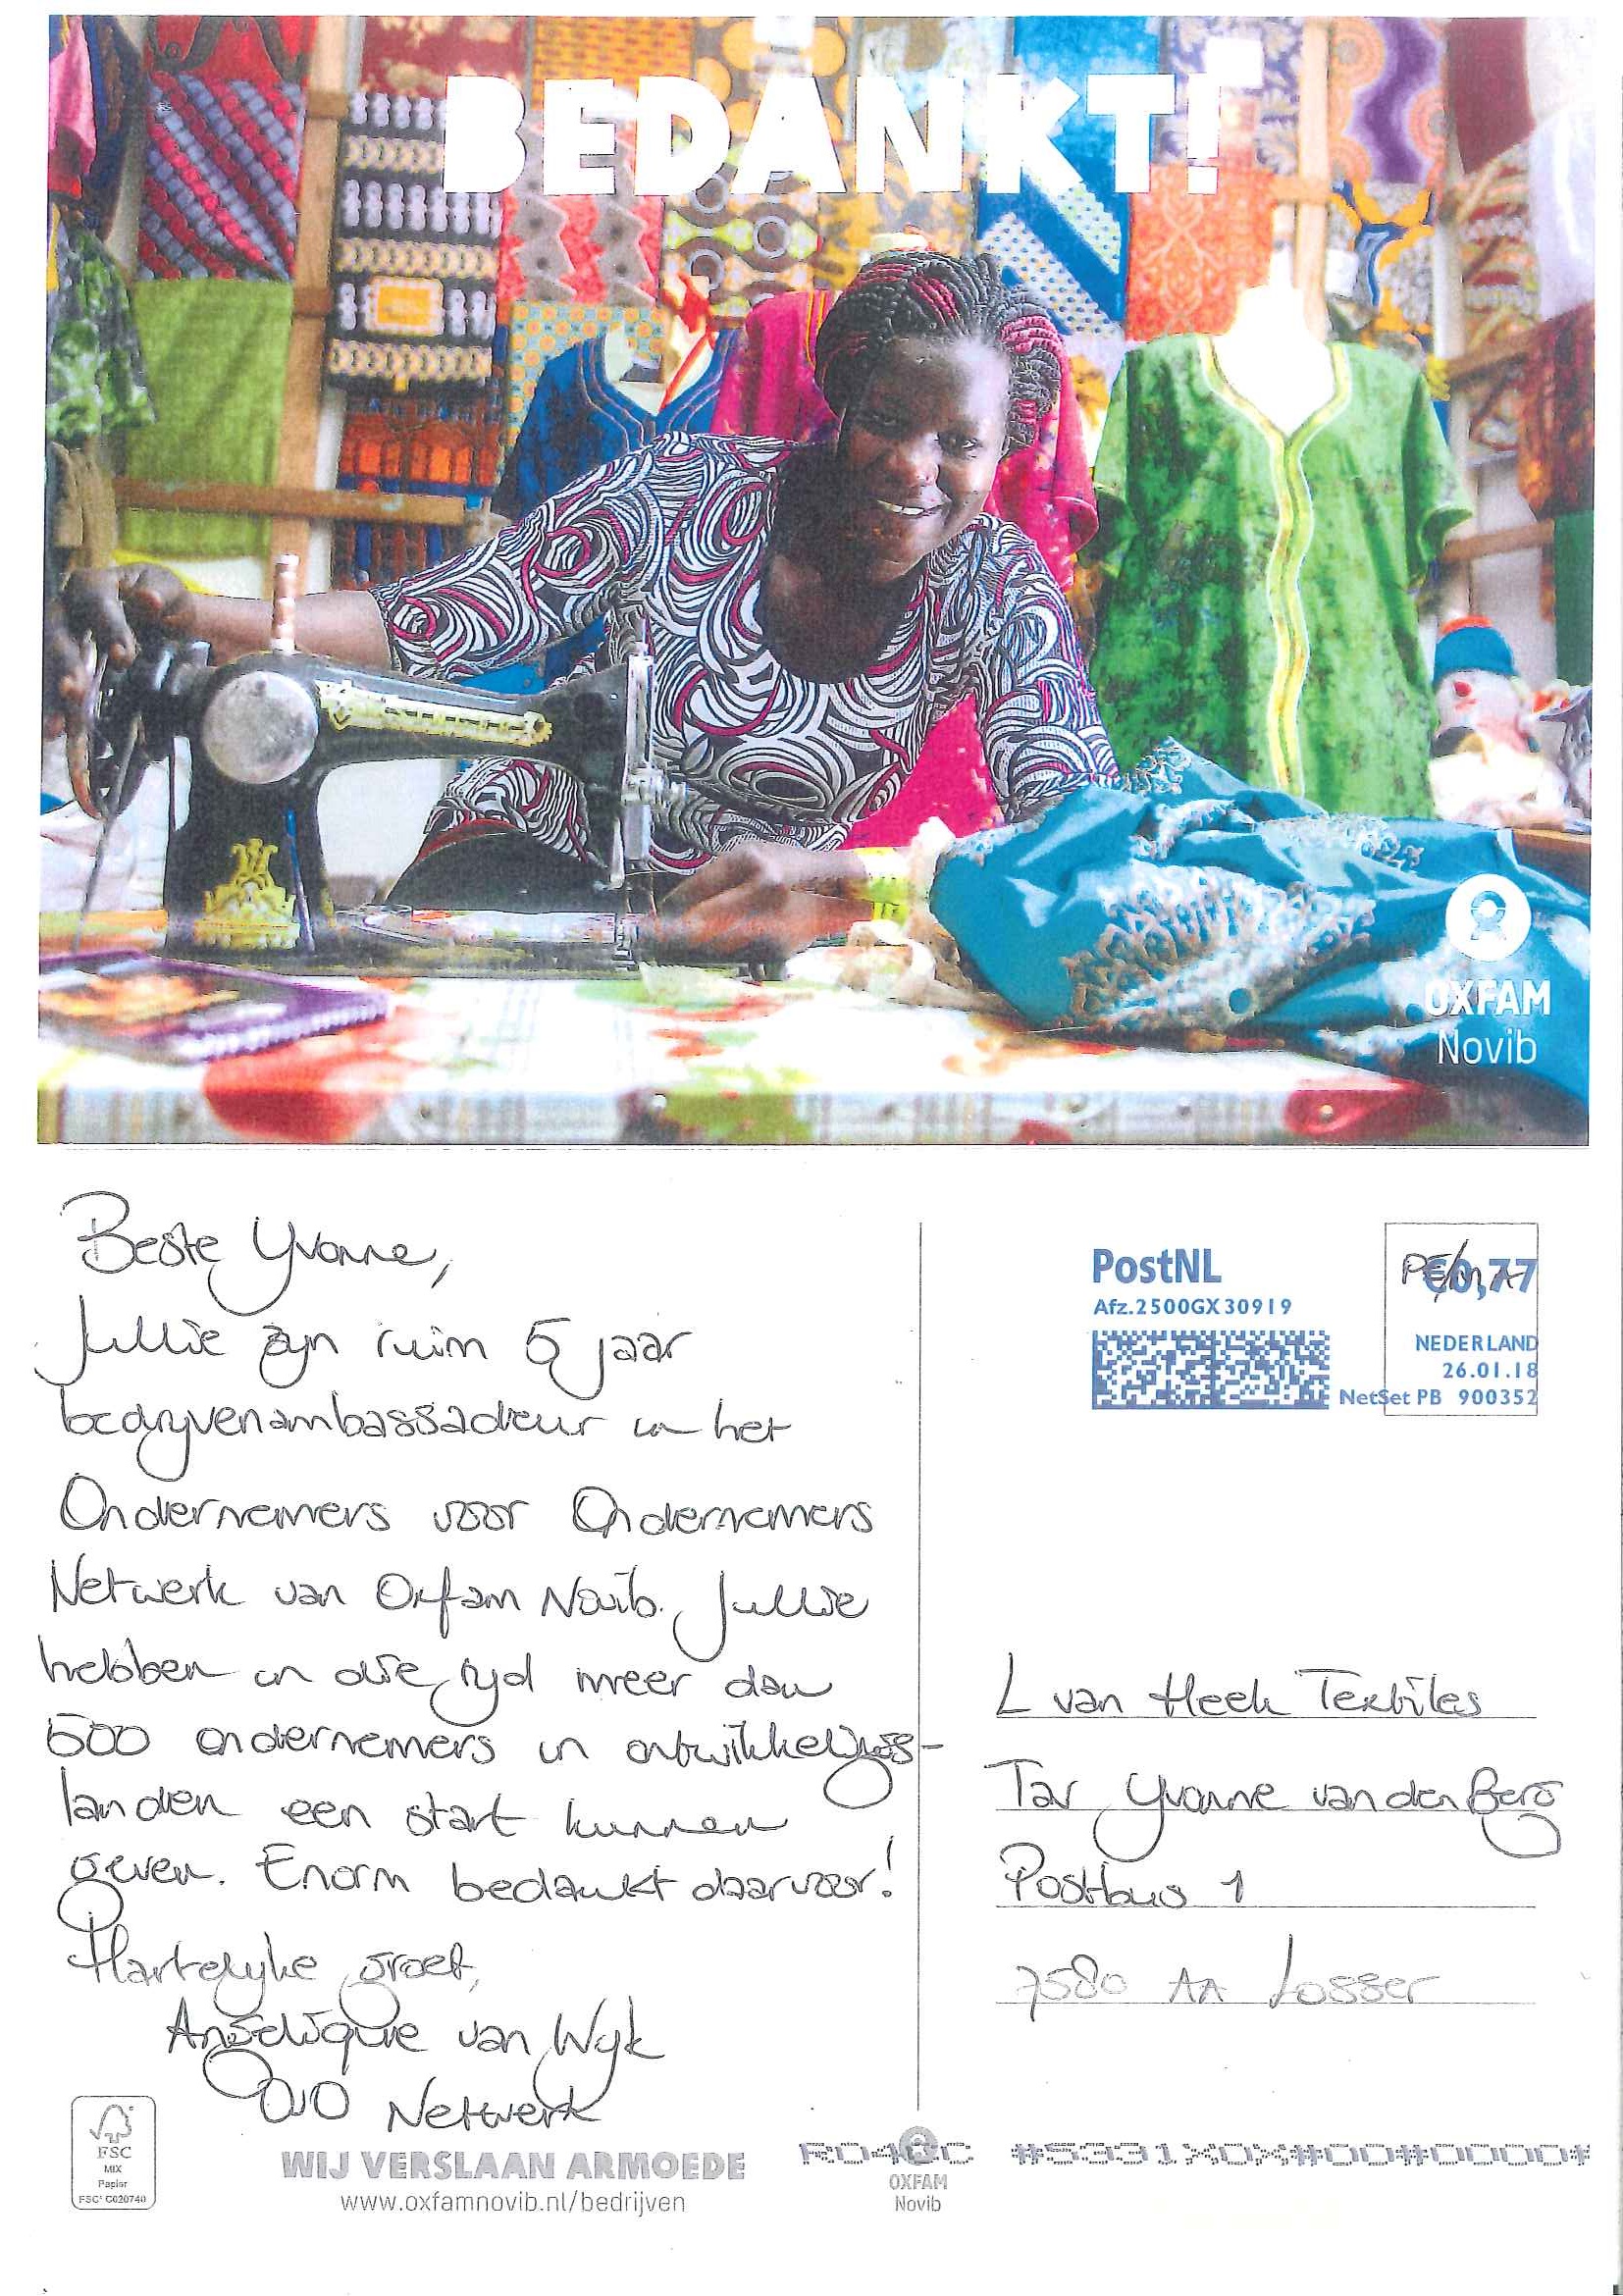 BEDANKT!
OXFAM
Novib
Beste Yvonne,
Jullie zijn ruim 5 jaar
bedrijvenambassadeur in het
Ondernemers voor Ondernemers
Netwerk van Oxfam Novib. Jullie
hebben in die tijd meer dan
500 ondernemers in ontwikkelings-
landen een start kunnen
geven. Enorm bedankt daarvoor!
Hartelijke groet,
Angelique van Wijk
OVO Netwerk
PostNL
Afz.2500GX30919
€0,77
NEDERLAND
26.01.18
NetSet PB 900352
L van Heek Textiles
Tav Yvonne van den Berg
Postbus 1
7580 AA Losser
FSC
MIX
Papier
FSC® C020740
WIJ VERSLAAN ARMOEDE
www.oxfamnovib.nl/bedrijven
OXFAM
Novib